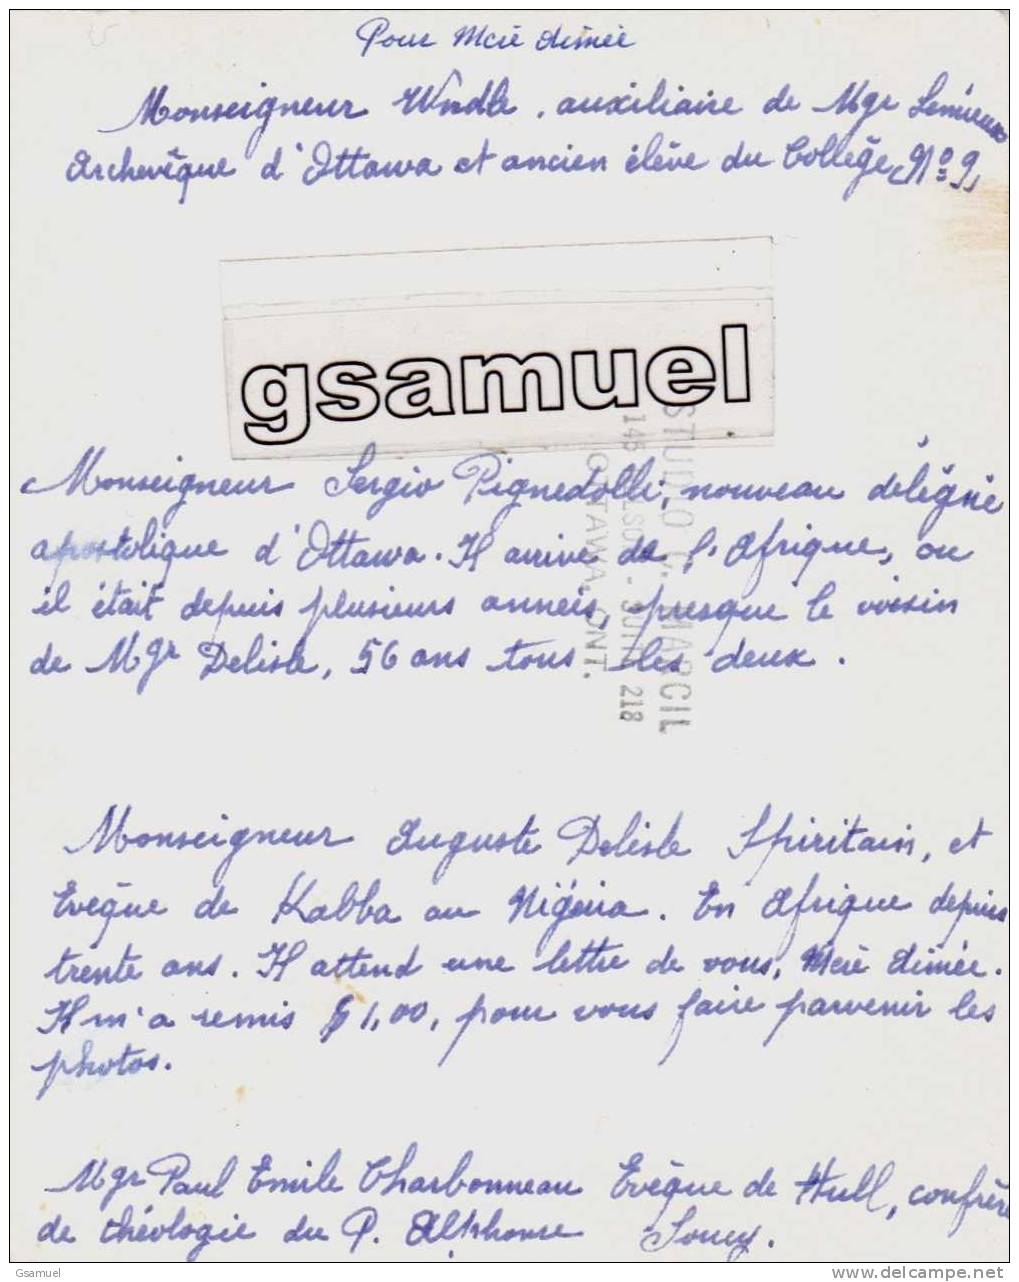 Pour Mcie Aimée
Monseigneur Windle, auxiliaire de Mgr Lemieux
Archevêque d'Ottawa et ancien élève du Collège, No 9,
gsamuel
Monseigneur Sergio Pignedolli, nouveau délégué
apostolique d'Ottawa. Il arrive de l'Afrique, ou
il était depuis plusieurs anneés, presque le voisin
de Mgr Delisle, 56 ans tous les deux.
STUDIO C. MARCIL
145 - SUITE 218
OTTAWA, ONT.
Monseigneur Auguste Delisle Spiritain, et
Evêque de Kabba au Nigéria. En Afrique depuis
trente ans. Il attend une lettre de vous, Mcie Aimée.
Il m'a remis $1,00, pour vous faire parvenir les
photos.
Mgr Paul Emile Charbonneau Evêque de Hull, confrère
de théologie du P. Alphonse Soucy.
Gsamuel
delcampe.net